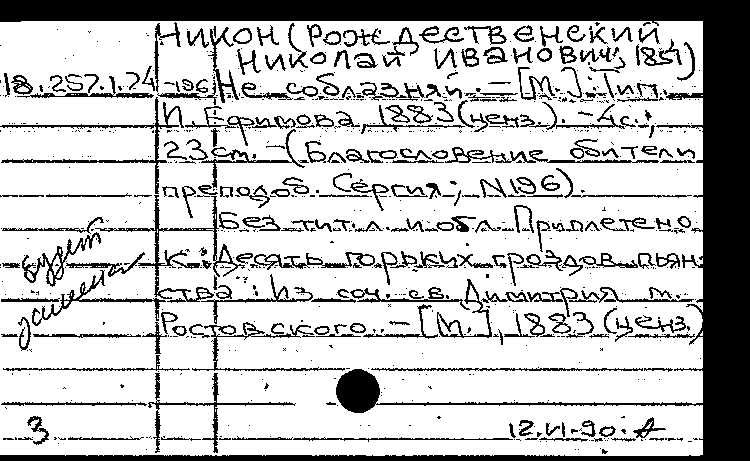 Никон (Рождественский,
Николай Иванович; 1851)
18.257.1.74 -196 Не соблазняй. — [М.]: Тип.
И. Ефимова, 1883 (ценз.). - 4с.;
23 см. - (Благословение обители
преподоб. Сергия; N196).
Без тит. л. и обл. Приплетено
к: Десять горьких гроздов пьян-
ства: Из соч. св. Димитрия м.
Ростовского. - [М.], 1883 (ценз.)
будет
3 12.VI-90.